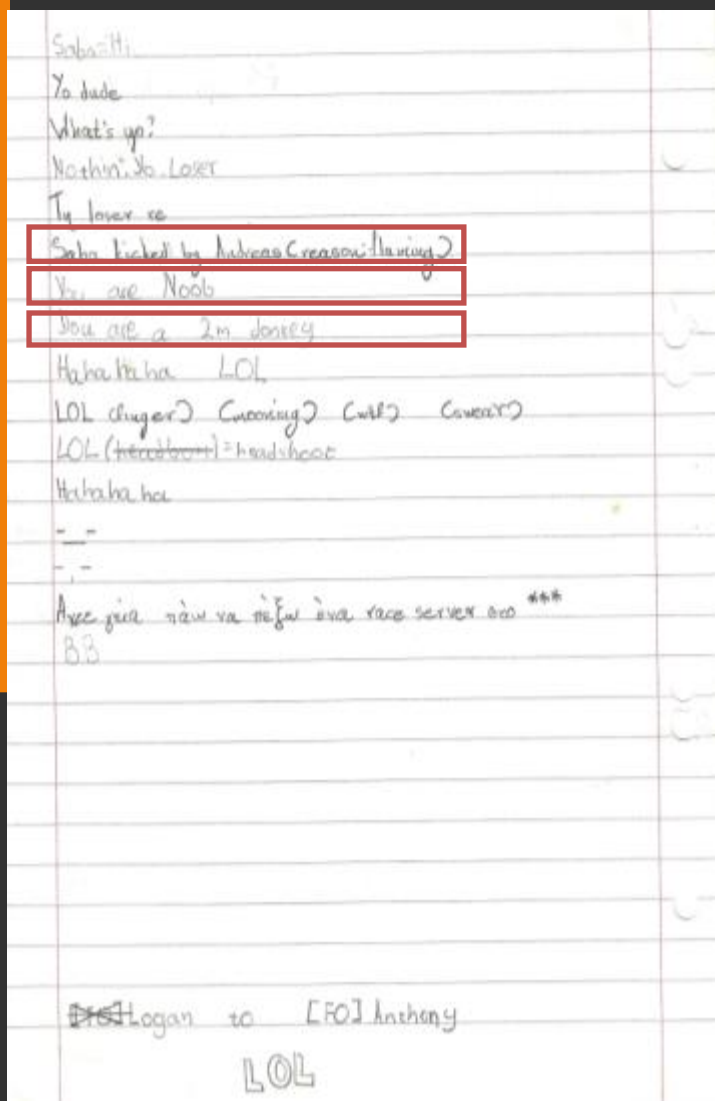 Saba=Hi
Yo dude
What's up?
Nothin'. Yo. Loser
Ty loser re
Saba kicked by Andreas (reason: flaming)
You are Noob
You are a 2m donkey
Hahahaha LOL
LOL (finger) (mooning) (wtf) (swear)
LOL ()=headshoot
Hahahaha
- _ -
- , -
Αντε γεια πάω να πέξω ένα race server στο ***
BB
Logan to [FO] Anthony
LOL